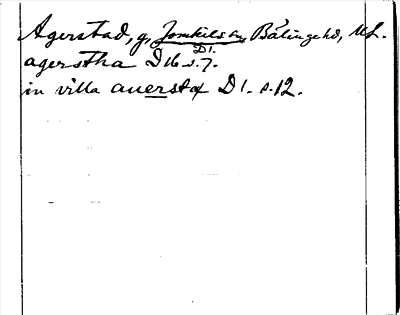 Agerstad, g, Jomkils sn, Bälinge hd, Upl.
D1.
agerstha D16 s. 7.
in villa auerstæ D1. s. 12.